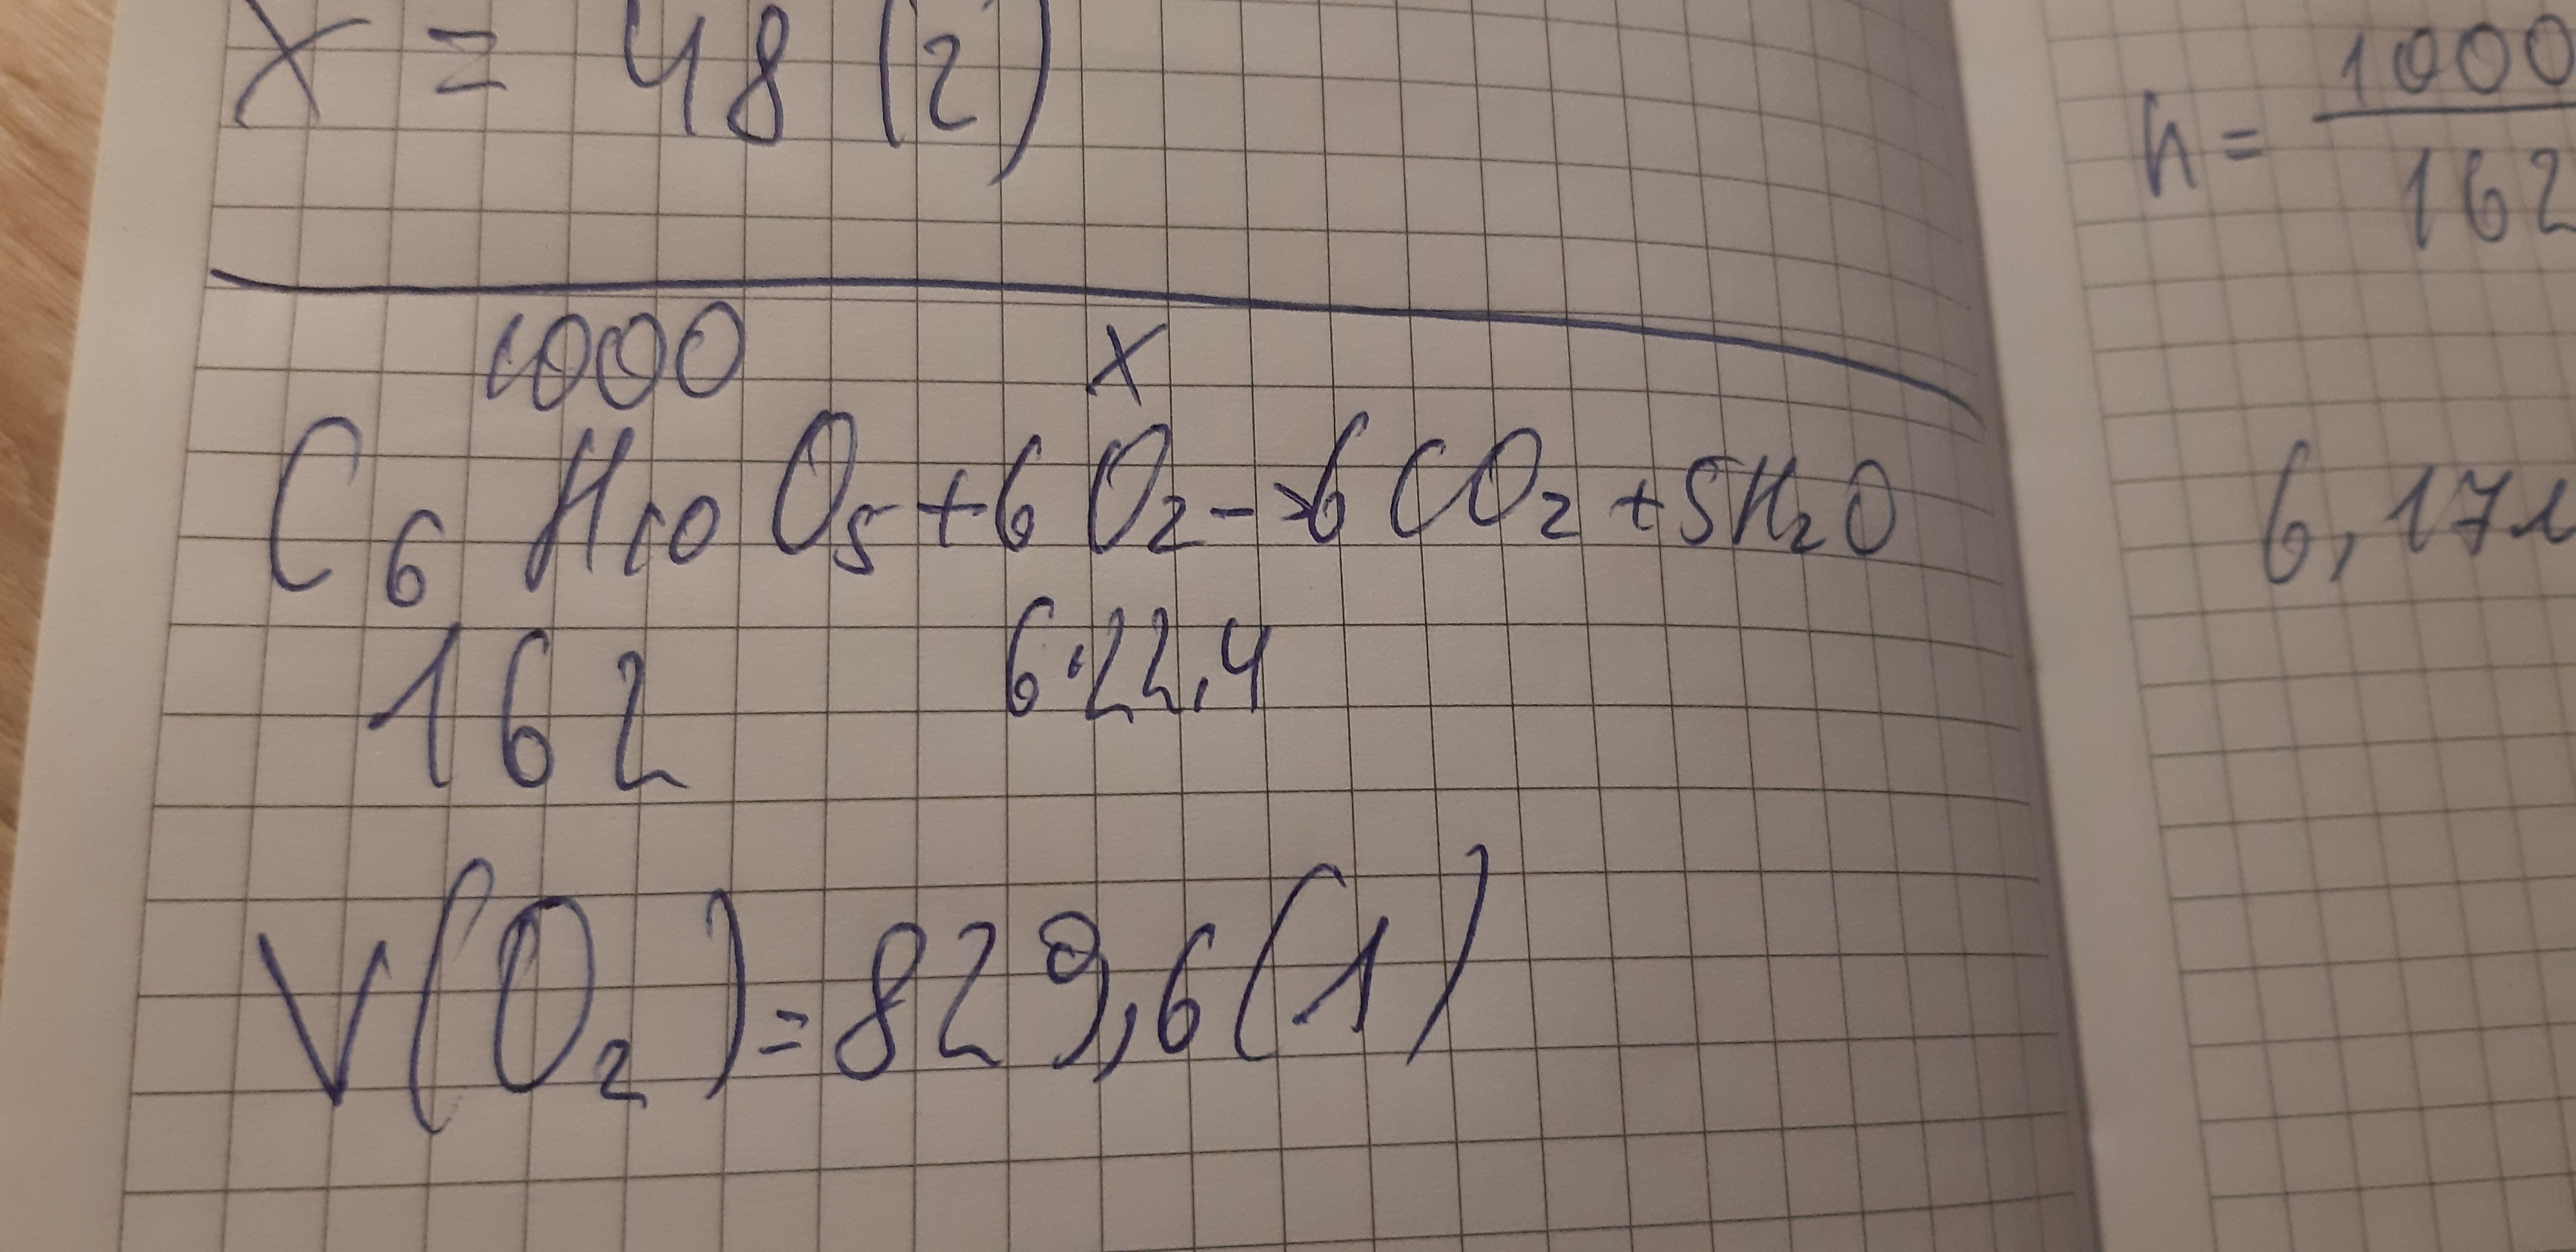 X = 48 (г)
1000 X
C₆H₁₀O₅+6O₂->6CO₂+5H₂O
162 6·22,4
V(O₂)=829,6(л)
n=1000/162
6,17